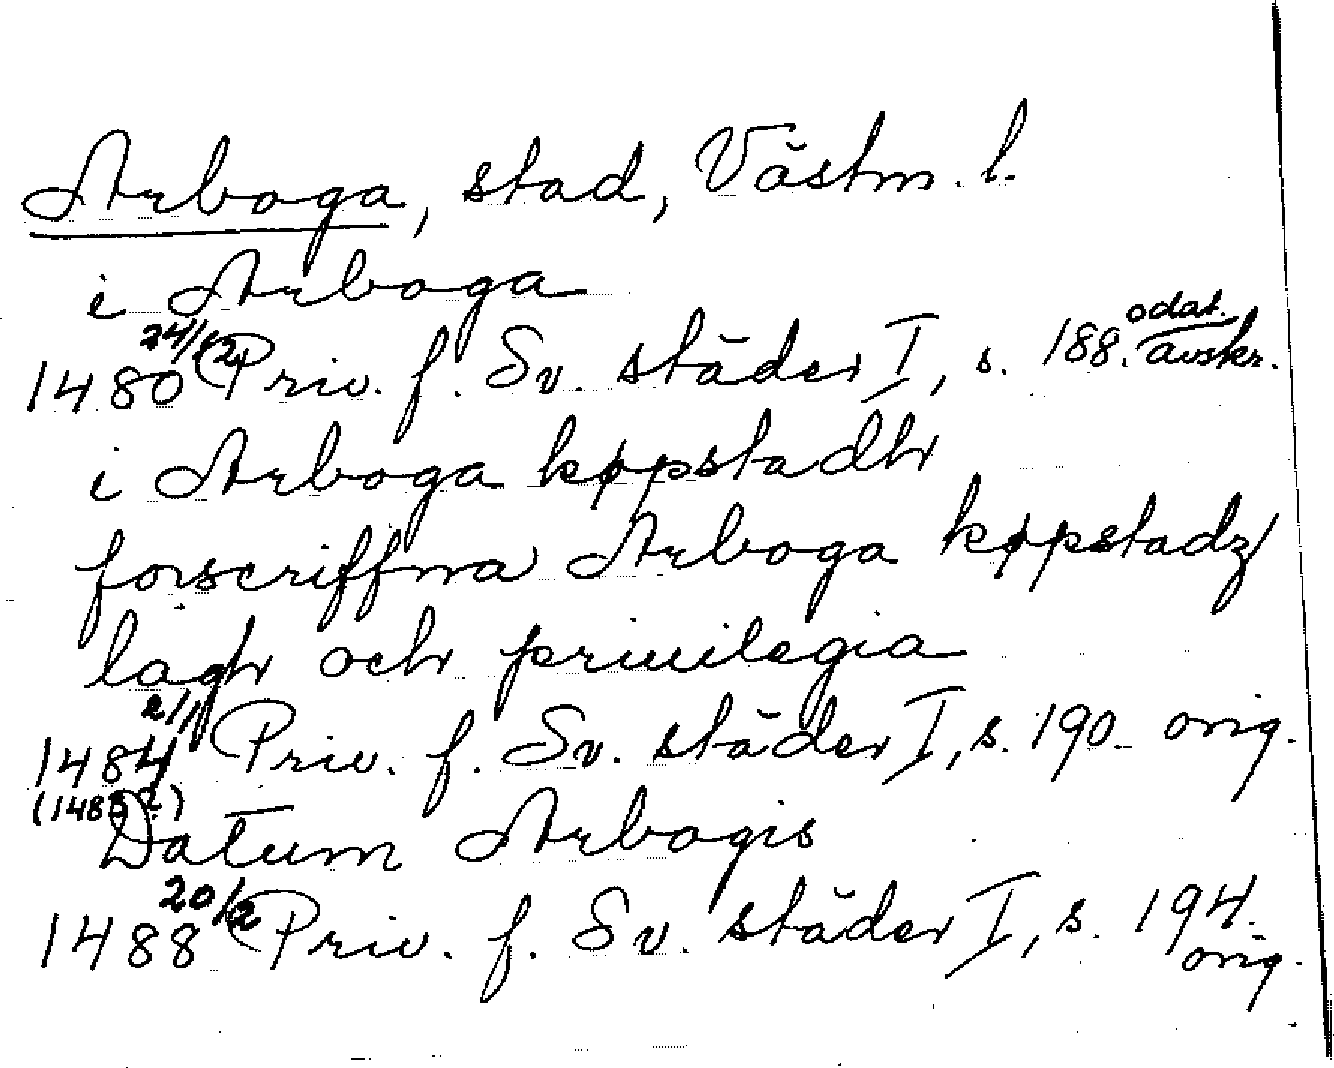 Arboga, stad, Västm. l.
i Arboga
1480 24/12 Priv. f. Sv. städer I, s. 188. odat. avskr.
i Arboga køpstadh
forscriffna Arboga køpstadz
lagh och priuilegia
1484 2/1 Priv. f. Sv. städer I, s. 190 orig.
(1485?)
Datum Arbogis
1488 20/2 Priv. f. Sv. städer I, s. 194.
orig.